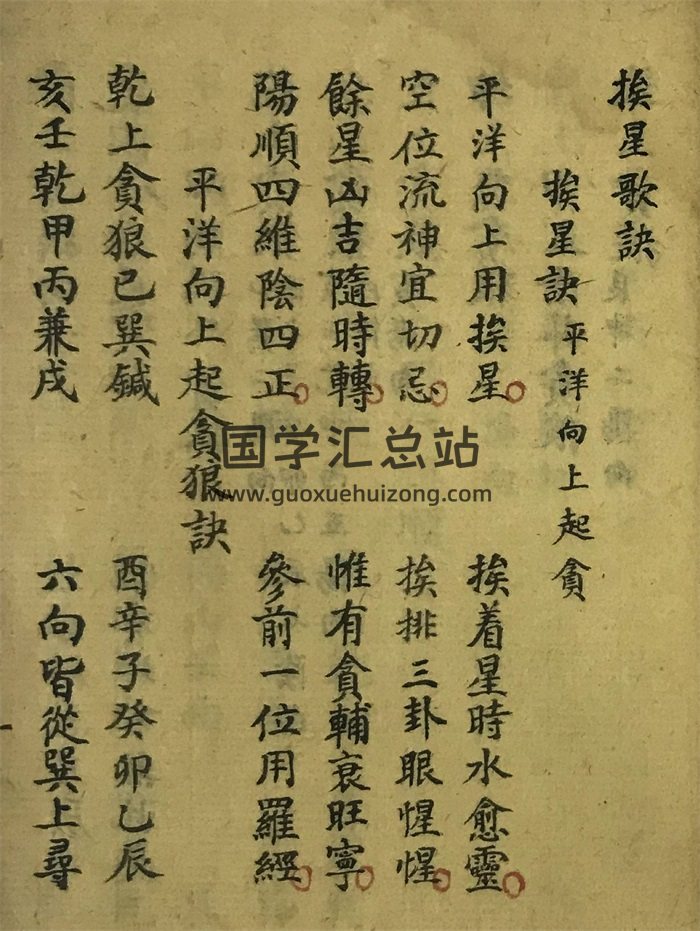 挨星歌訣
挨星訣 平洋向上起貪
平洋向上用挨星 挨着星時水愈靈
空位流神宜切忌 挨排三卦眼惺惺
餘星凶吉隨時轉 惟有貪輔衰旺寧
陽順四維陰四正 參前一位用羅經
平洋向上起貪狼訣
乾上貪狼巳巽鍼 酉辛子癸卯乙辰
亥壬乾甲丙兼戌 六向皆從巽上尋
国学汇总站
www.guoxuehuizong.com